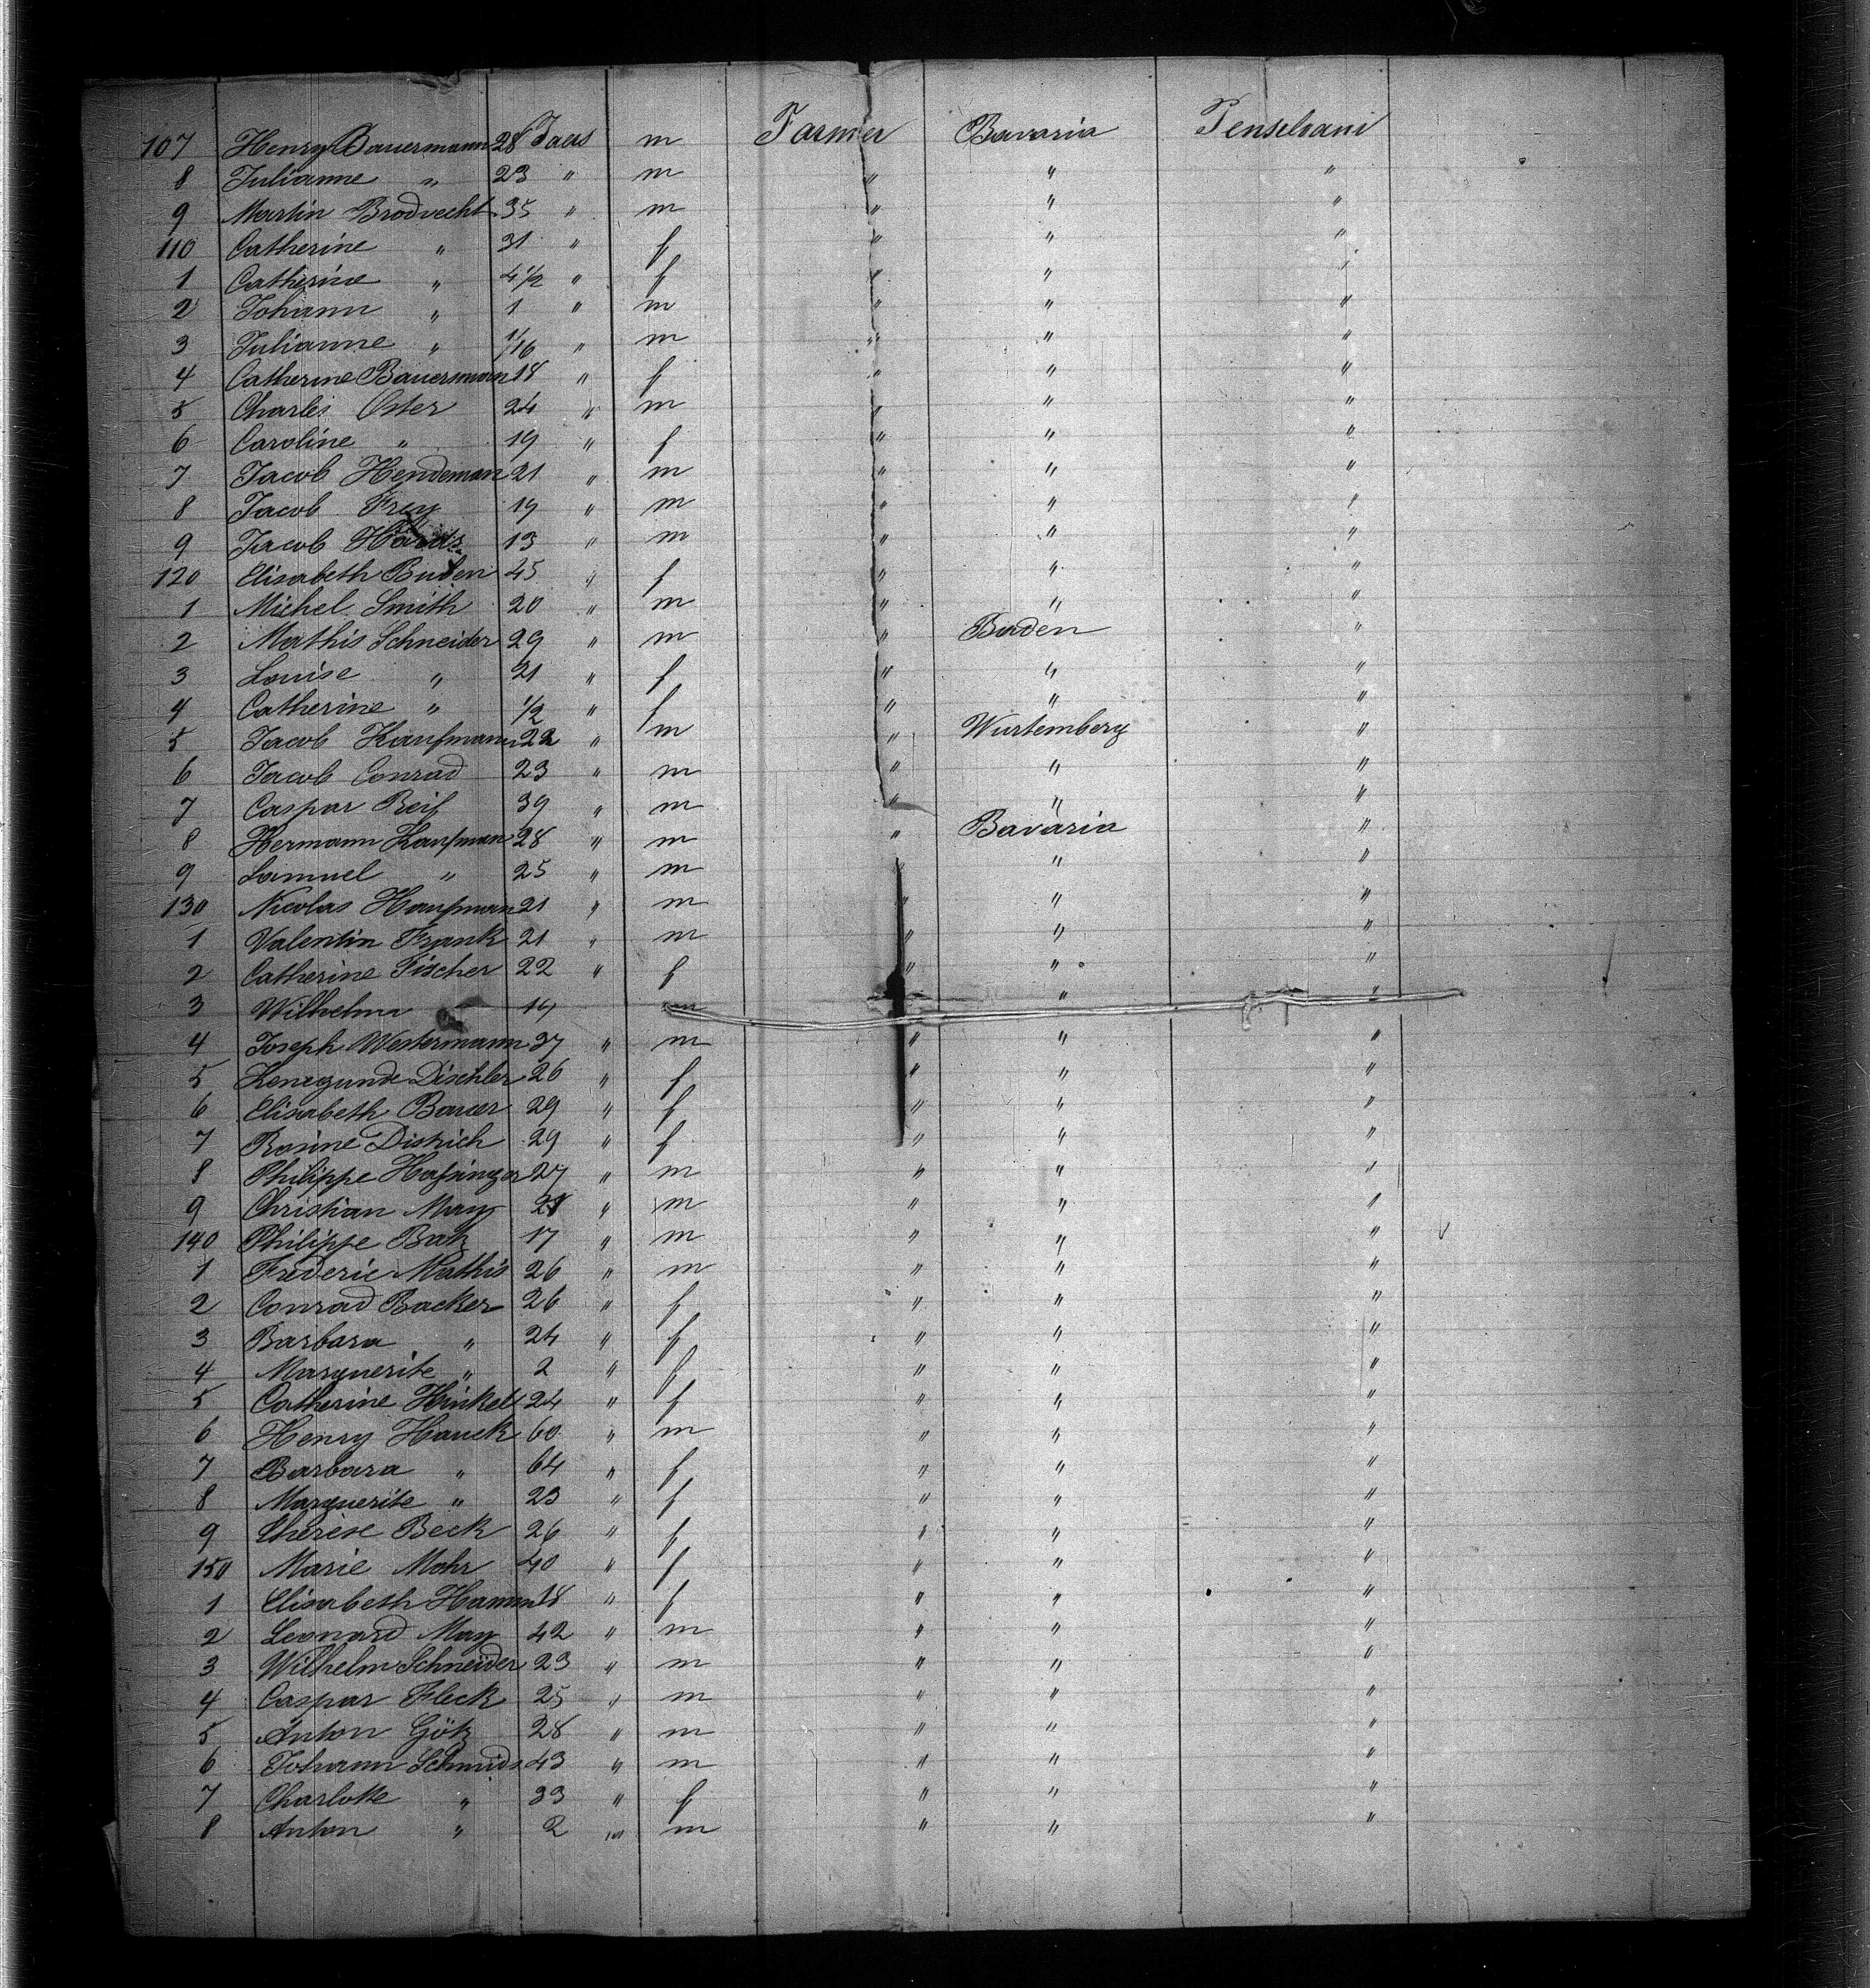 107 Henry Bauermann 28 Jaers m Farmer Bavaria Penselvani
8 Julianne " 23 " m " " "
9 Martin Brodvecht 35 " m " " "
110 Catherine " 31 " f " " "
1 Catherine " 4 1/2 " f " " "
2 Johann " 1 " m " " "
3 Julianne " 1/16 " m " " "
4 Catherine Bauersmann 18 " f " " "
5 Charles Oster 24 " m " " "
6 Caroline " 19 " f " " "
7 Jacob Hendeman 21 " m " " "
8 Jacob Frey 19 " m " " "
9 Jacob 13 " m " " "
120 Elisabeth Buden 45 " f " " "
1 Michel Smith 20 " m " " "
2 Mathis Schneider 29 " m " Baden "
3 Louise " 21 " f " " "
4 Catherine " 1/2 " f " " "
5 Jacob Kaufmann 22 " m " Wurtemberg "
6 Jacob Conrad 23 " m " " "
7 Caspar Reif 39 " m " " "
8 Hermann Kaufman 28 " m " Bavaria "
9 Samuel " 25 " m " " "
130 Nicolas Haufman 21 " m " " "
1 Valentin Frank 21 " m " " "
2 Catherine Fischer 22 " f " " "
3 Wilhelm 14 m " "
4 Joseph Westermann 37 " m " " "
5 Kenegunde Dischler 26 " f " " "
6 Elisabeth Bauer 29 " f " " "
7 Rosine Districh 29 " f " " "
8 Philippe Hafsinger 27 " m " " "
9 Christian May 28 " m " " "
140 Philippe Batz 17 " m " " "
1 Frederic Mathis 26 " m " " "
2 Conrad Backer 26 " f " " "
3 Barbara " 24 " f " " "
4 Marguerite " 2 " f " " "
5 Catherine Hinkel 24 " f " " "
6 Henry Hauck 60 " m " " "
7 Barbara " 64 " f " " "
8 Marguerite " 23 " f " " "
9 Therese Beck 26 " f " " "
150 Marie Mohr 40 " f " " "
1 Elisabeth Hamm 18 " f " " "
2 Leonard May 42 " m " " "
3 Wilhelm Schneider 23 " m " " "
4 Caspar Fleck 25 " m " " "
5 Anton Götz 28 " m " " "
6 Johann Schmids 43 " m " " "
7 Charlotte " 33 " f " " "
8 Anton " 2 " m " " "